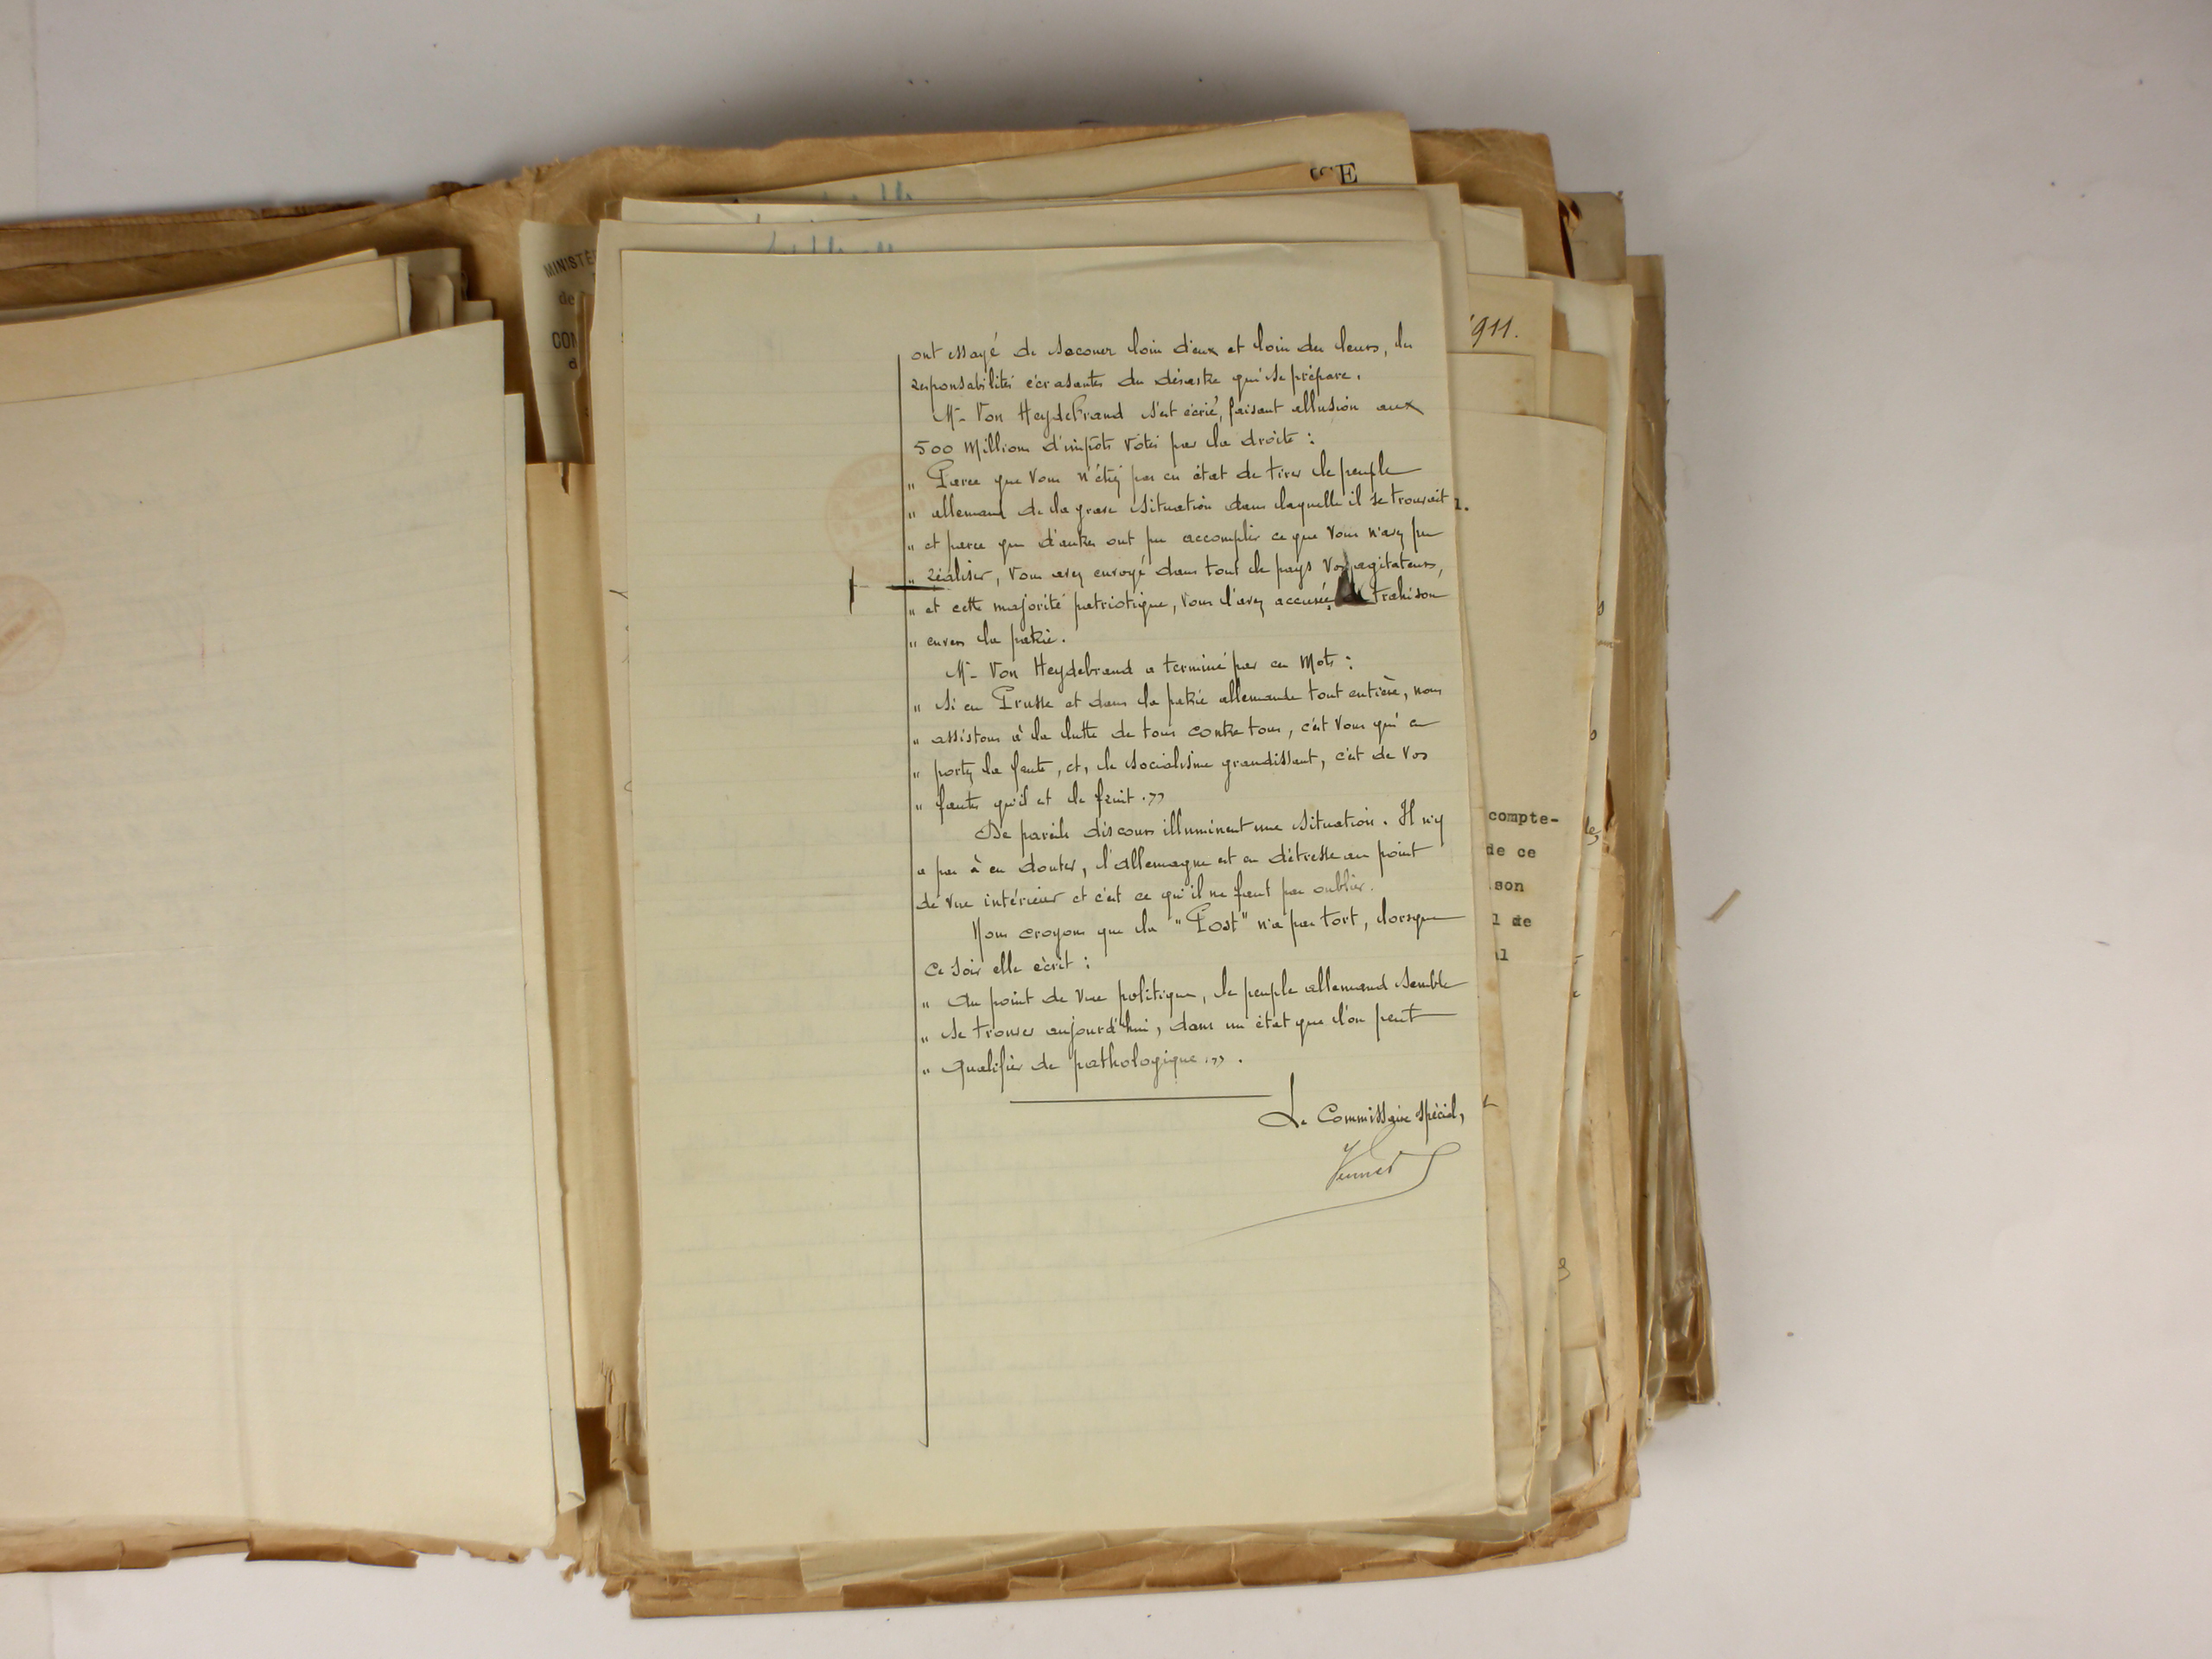 CE
MINISTÈ
de
CON
d
1911.
ont essayé de secouer loin d'eux et loin des leurs, les
responsabilités écrasantes du désastre qui se prépare.
Mr Von Heydebrand s'est écrié, faisant allusion aux
500 Millions d'impôts votés par la droite :
" Parce que vous n'étiez pas en état de tirer le peuple
" allemand de la grave situation dans laquelle il se trouvait
" et parce que d'autres ont pu accomplir ce que vous n'avez pu
" réaliser, vous avez envoyé dans tout le pays vos agitateurs,
" et cette majorité patriotique, vous l'avez accusée de trahison
" envers la patrie.
Mr Von Heydebrand a terminé par ces mots :
" Si en Prusse et dans la patrie allemande tout entière, nous
" assistons à la lutte de tous contre tous, c'est vous qui en
" portez la faute, et, le socialisme grandissant, c'est de vos
" fautes qu'il est le fruit. »
De pareils discours illuminent une situation. Il n'y
a pas à en douter, l'allemagne est en détresse au point
de vue intérieur et c'est ce qu'il ne faut pas oublier.
Nous croyons que la "Post" n'a pas tort, lorsque
ce soir elle écrit :
" Au point de vue politique, le peuple allemand semble
" se trouver aujourd'hui, dans un état que l'on peut
" qualifier de pathologique. » .
Le Commissaire spécial,
compte-
de ce
son
l de
al